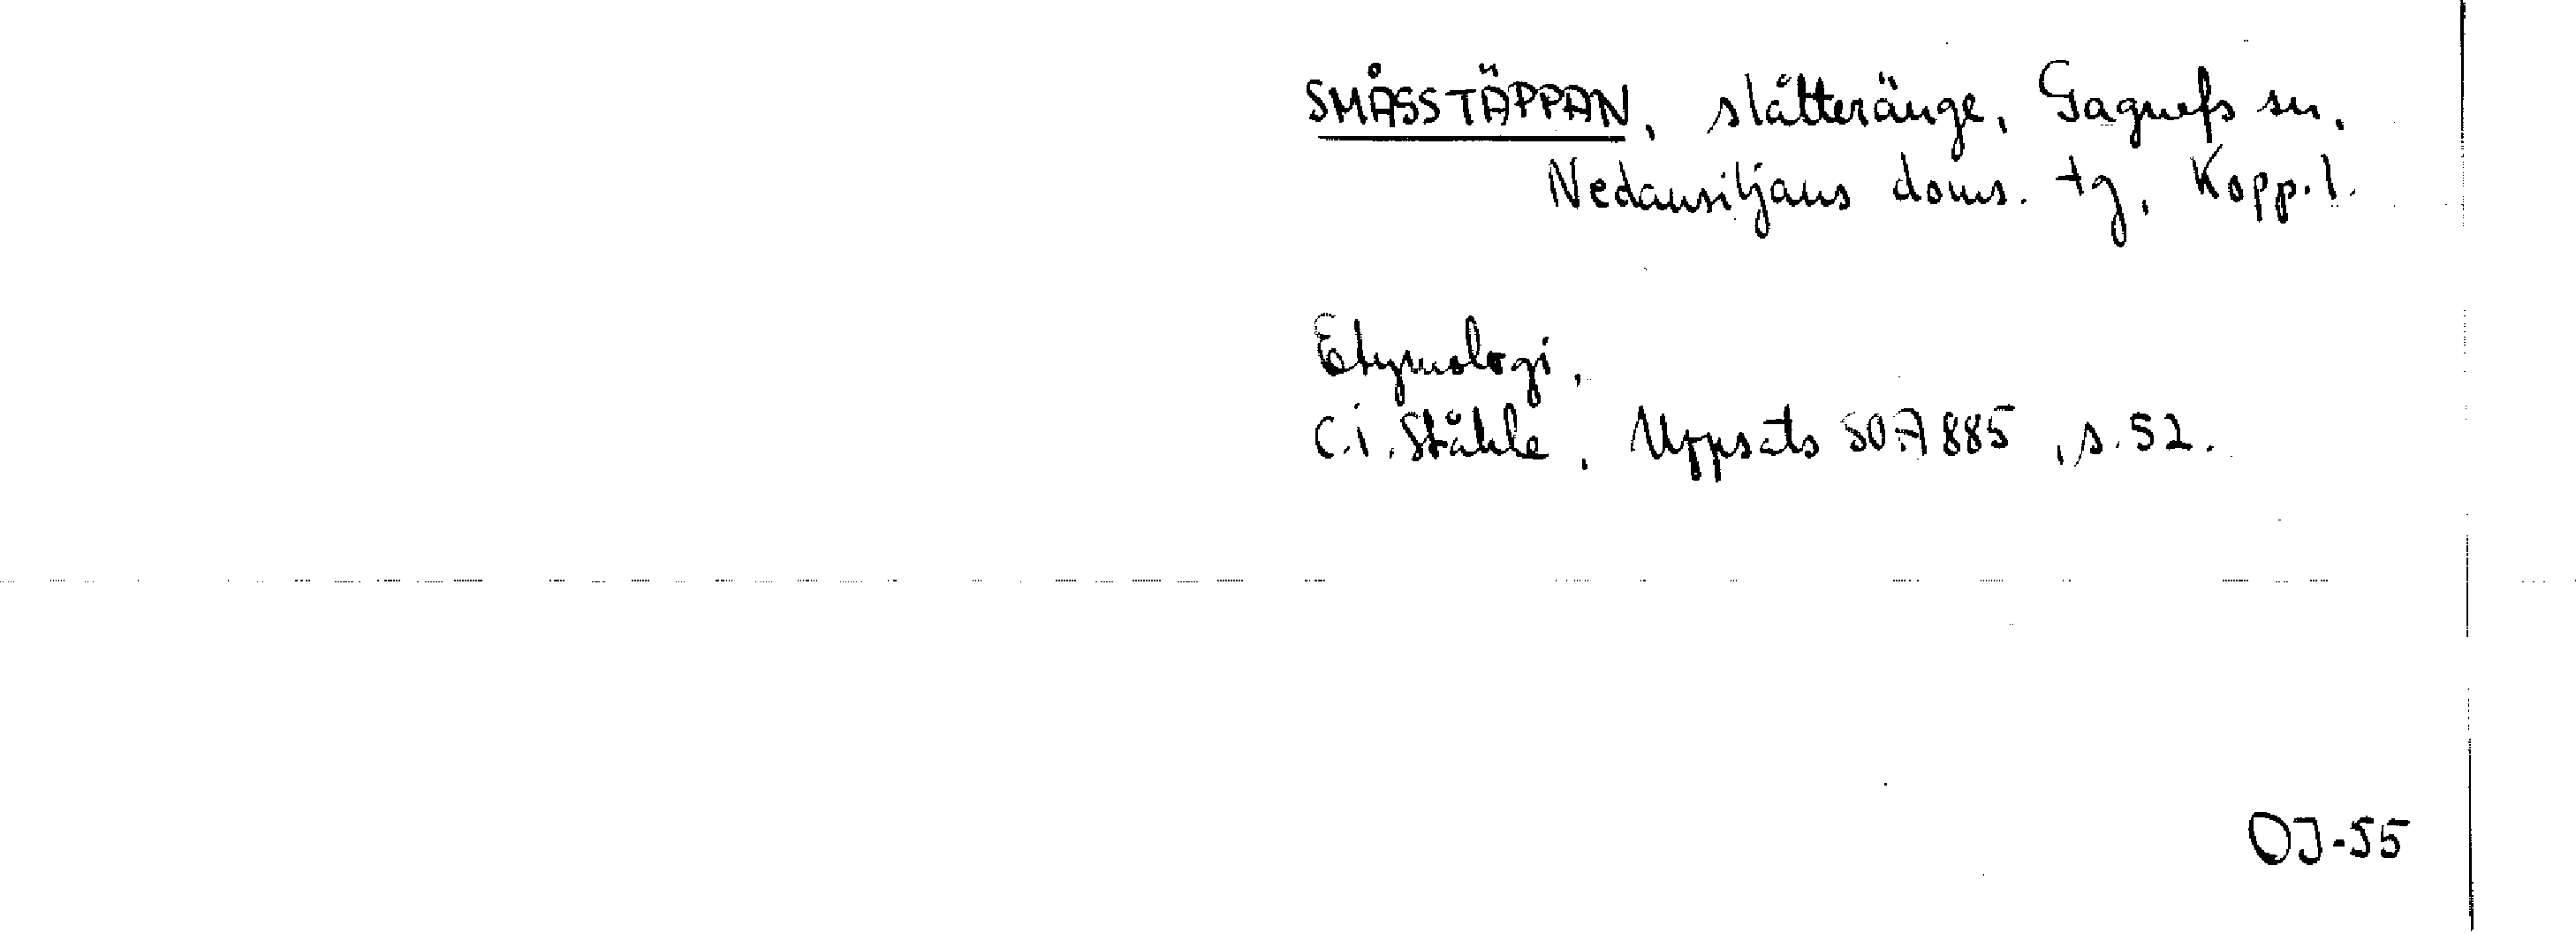 SMÅSSTÄPPAN, slåtteränge, Gagnefs sn,
Nedansiljans doms. tg, Kopp. l.
Etymologi,
C.I. Ståhle, Uppsats SOA 885, s. 52.
OJ-55